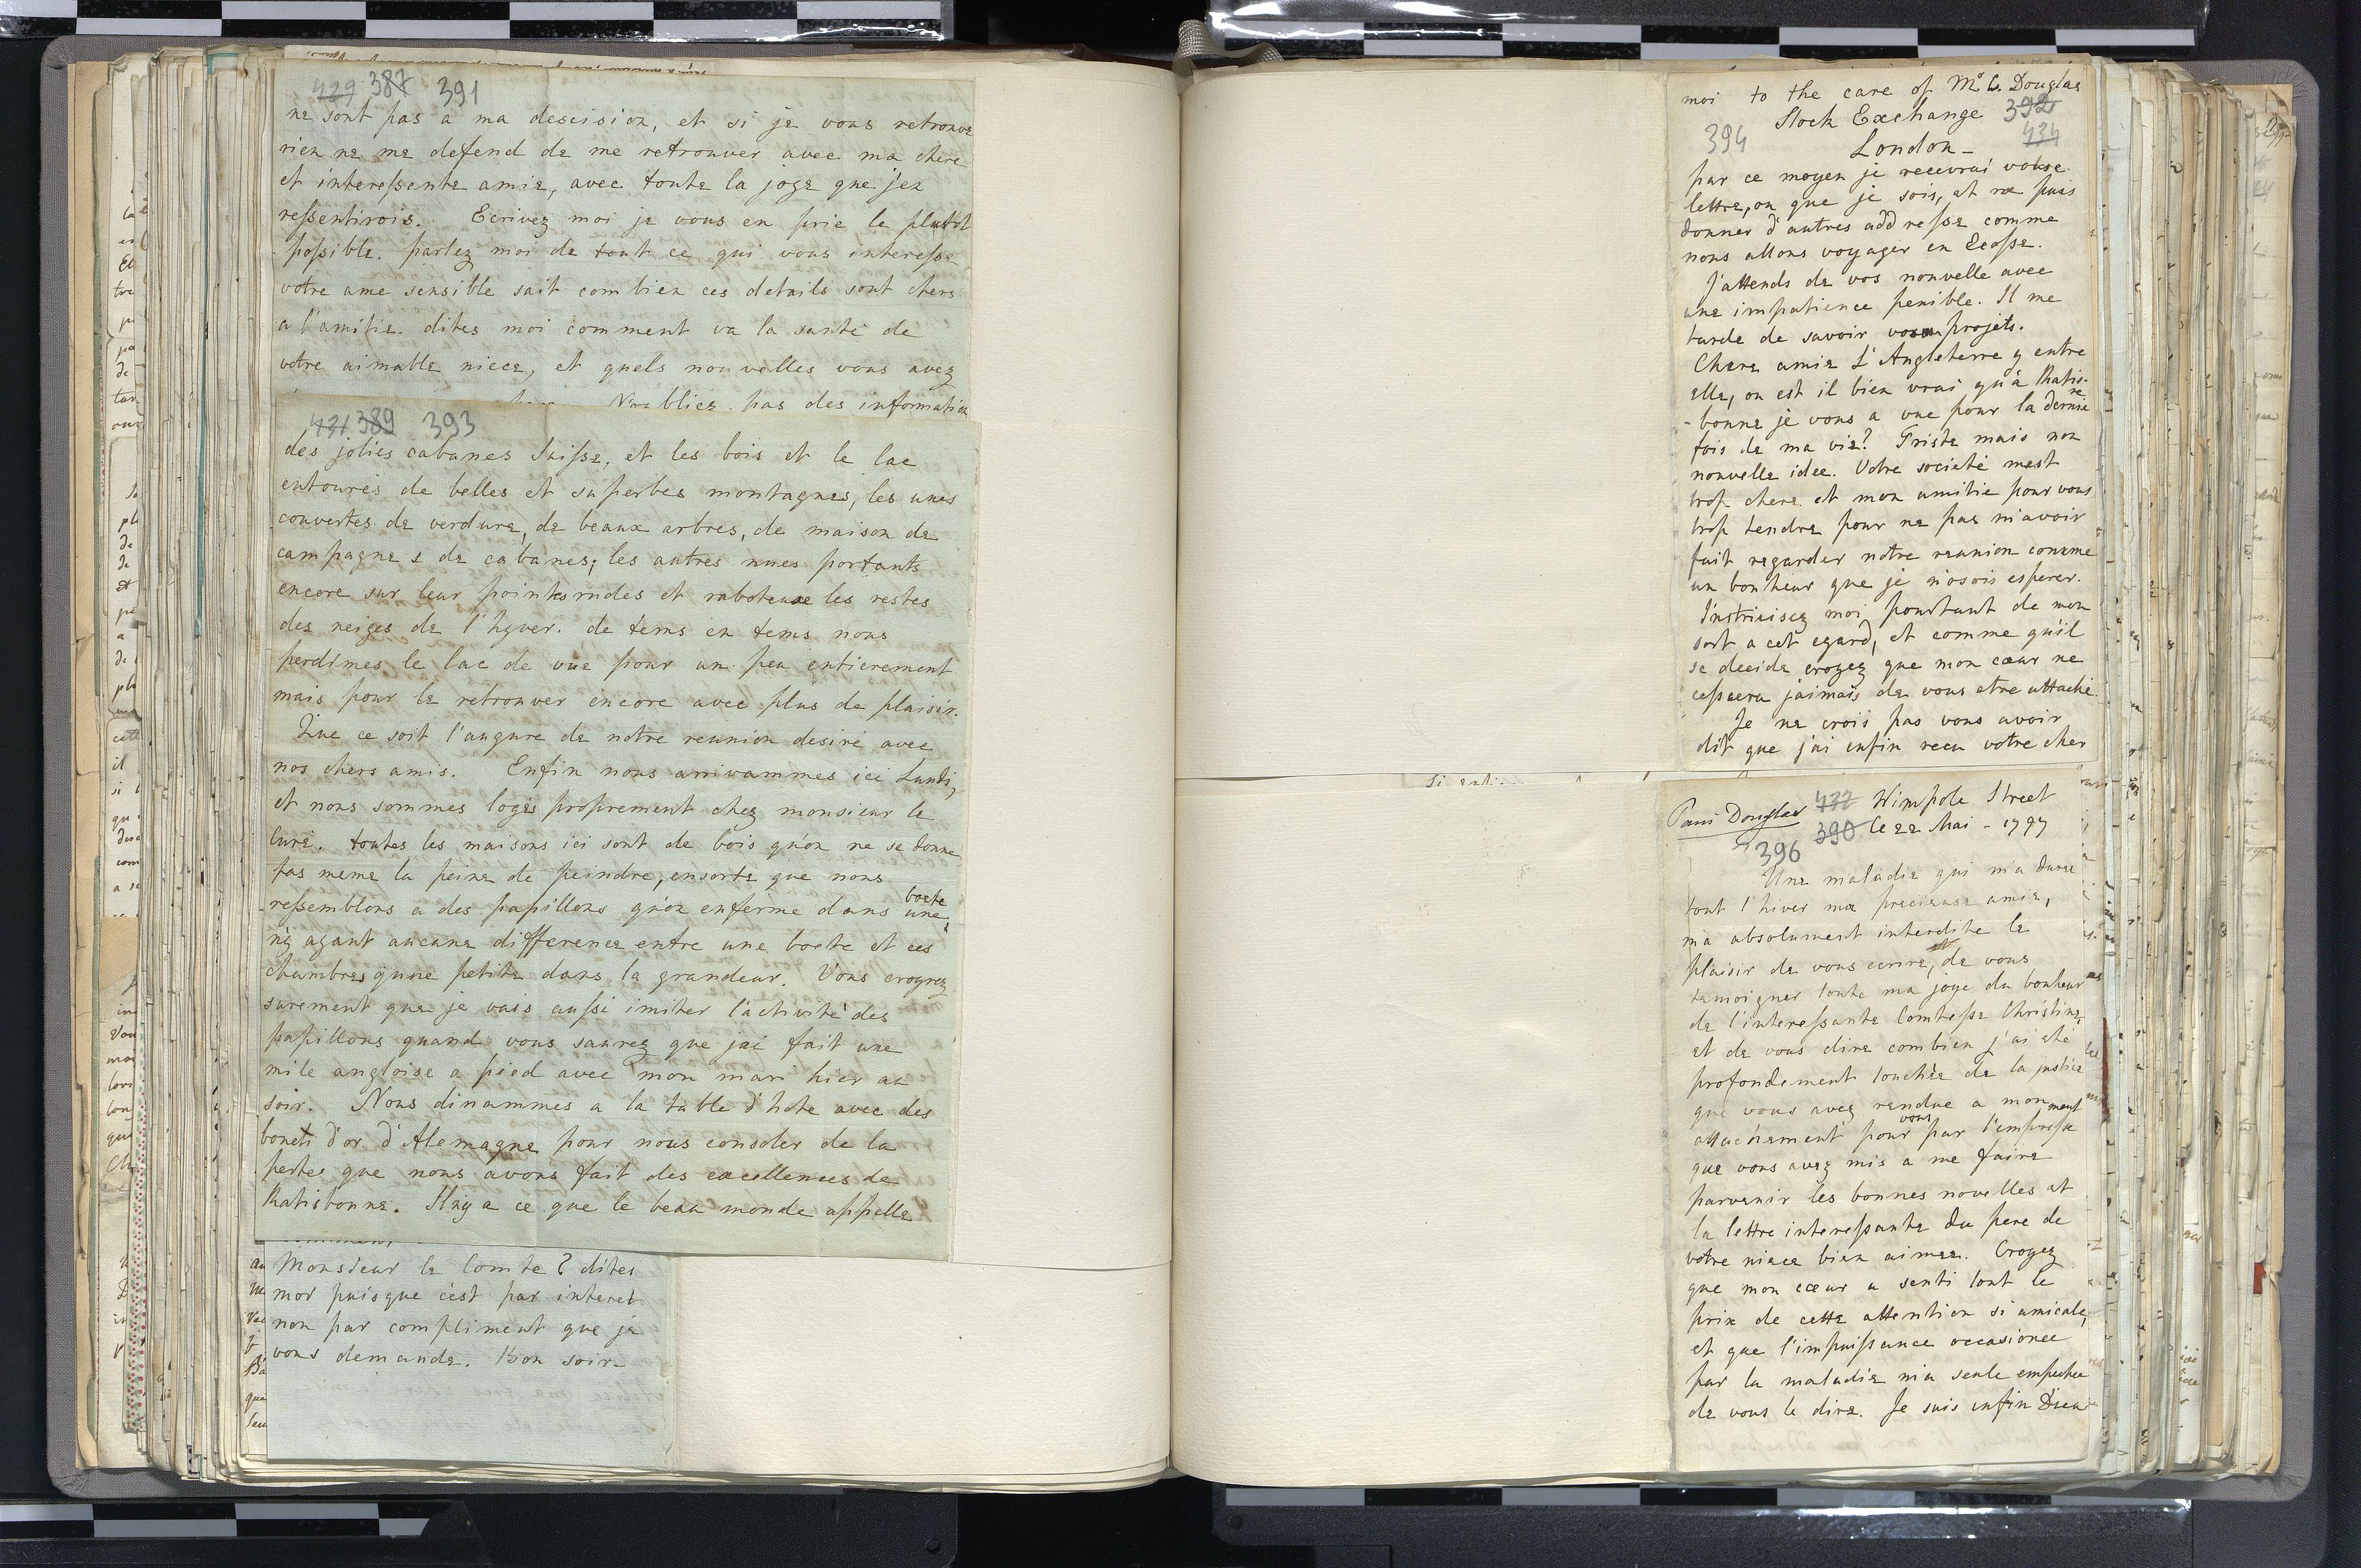 429 387 391
ne sont pas a ma descision, et si je vous retrouve
rien ne me defend de me retrouver avec ma chere
et interessante amie, avec toute la joye que j'en
ressentirois. Ecrivez moi je vous en prie le plustot
possible. parlez moi de tout ce qui vous interesse
votre ame sensible sait combien ces details sont chers
a l'amitie. dites moi comment va la santé de
votre aimable niece, et quels nouvelles vous avez
N'oubliez pas des information
431 389 393
des jolies cabanes Suisse, et les bois et le lac
entourés de belles et superbes montagnes, les unes
couvertes de verdure, de beaux arbres, de maison de
campagne & de cabanes; les autres nues portants
encore sur leur pointes rudes et raboteuse les restes
des neiges de l'hyver. de tems en tems nous
perdimes le lac de vüe pour un peu entierement
mais pour le retrouver encore avec plus de plaisir.
Que ce soit l'augure de notre reunion desiré avec
nos chers amis. Enfin nous arrivammes ici Lundi,
et nous sommes logés proprement chez monsieur le
Curé. toutes les maisons ici sont de bois qu'on ne se donne
pas meme la peine de peindre, ensorte que nous
ressemblons a des papillons qu'on enferme dans une boete,
n'y ayant aucune difference entre une boete et ces
chambres qu'une petite dans la grandeur. Vous croyrez
surement que je vais aussi imiter l'activité des
papillons quand vous saurez que j'ai fait une
mile angloise a pied avec mon mari hier au
soir. Nous dinammes a la table d'hote avec des
bonets d'or d'Alemagne pour nous consoler de la
pertee que nous avons fait des excellences de
Ratisbonne. Il n'y a ce que le beau monde appelle
Monsieur le Comte? dites
moi puisque c'est par interet
non par compliment que je
vous demande. Bon soir
moi to the care of Mr G. Douglas
Stock Exchange 392
394 434
London -
par ce moyen je recevrai votre
lettre, ou que je sois, et ne puis
donner d'autres addresse comme
nous allons voyager en Ecosse.
J'attends de vos nouvelle avec
une impatience penible. Il me
tarde de savoir vos projets.
Chere amie L'Angleterre y entre
elle, ou est il bien vrai qu'a Ratis-
-bonne je vous a vue pour la derniere
fois de ma vie? Triste mais non
nouvelle idee. Votre societé mest
trop chere et mon amitie pour vous
trop tendre pour ne pas m'avoir
fait regarder notre reunion comme
un bonheur que je n'osois esperer.
Instruisez moi pourtant de mon
sort a cet egard, et comme qu'il
se decide croyez que mon cœur ne
cessera jaimais de vous etre attaché.
Je ne crois pas vous avoir
dit que j'ai enfin recu votre cher
Si
Douglas 432 Wimpole Street
390 Ce 22 Mai - 1797
396
Une maladie qui m'a durée
tout l'hiver ma precieuse amie,
m'a absolument interdite le
plaisir de vous ecrire, et de vous
temoigner toute ma joye du bonheur
de l'interessante Comtesse Christine,
et de vous dire combien j'ai eté
profondement touchée de la justice
que vous avez rendue a mon
attachement pour vous par l'empressement
que vous avez mis a me faire
parvenir les bonnes novelles et
la lettre interessante du pere de
votre niece bien aimee. Croyez
que mon cœur a senti tout le
prix de cette attention si amicale,
et que l'impuissance occasionee
par la maladie m'a seule empechee
de vous le dire. Je suis enfin Dieu